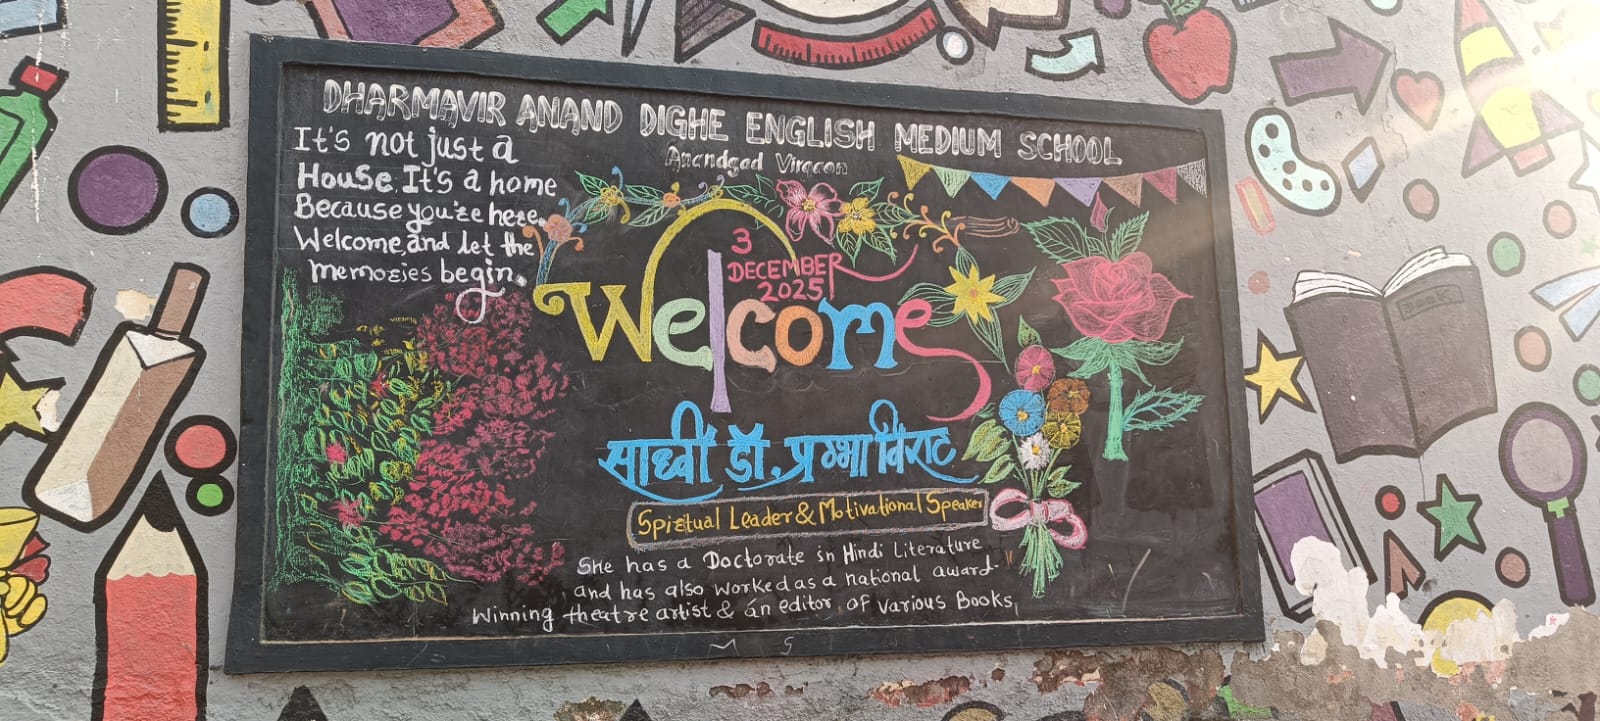 DHARMAVIR ANAND DIGHE ENGLISH MEDIUM SCHOOL
Anandgad Virgaon
It's not just a
House. It's a home
Because you're here.
Welcome, and let the
memories begin.
3
DECEMBER
2025
Welcome
साध्वी डॉ. प्रग्भा विराट
Spiritual Leader & Motivational Speaker
She has a Doctorate in Hindi Literature
and has also worked as a national award-
winning theatre artist & an editor of various Books,
BOOK